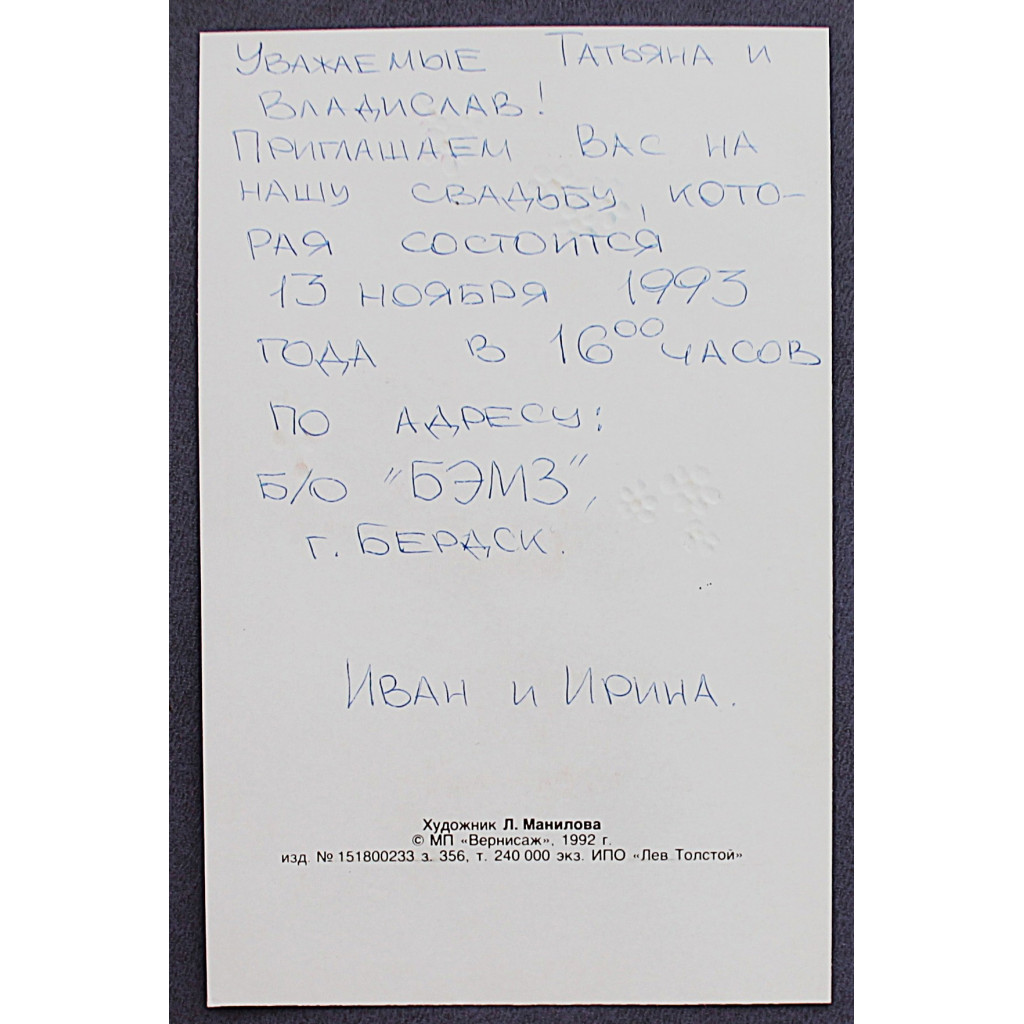 Уважаемые Татьяна и
Владислав!
Приглашаем Вас на
нашу свадьбу, кото-
рая состоится
13 ноября 1993
года в 16⁰⁰ часов
по адресу:
Б/О "БЭМЗ",
г. Бердск.
Иван и Ирина.
Художник Л. Манилова
© МП «Вернисаж», 1992 г.
изд. № 151800233 з. 356, т. 240 000 экз. ИПО «Лев Толстой»